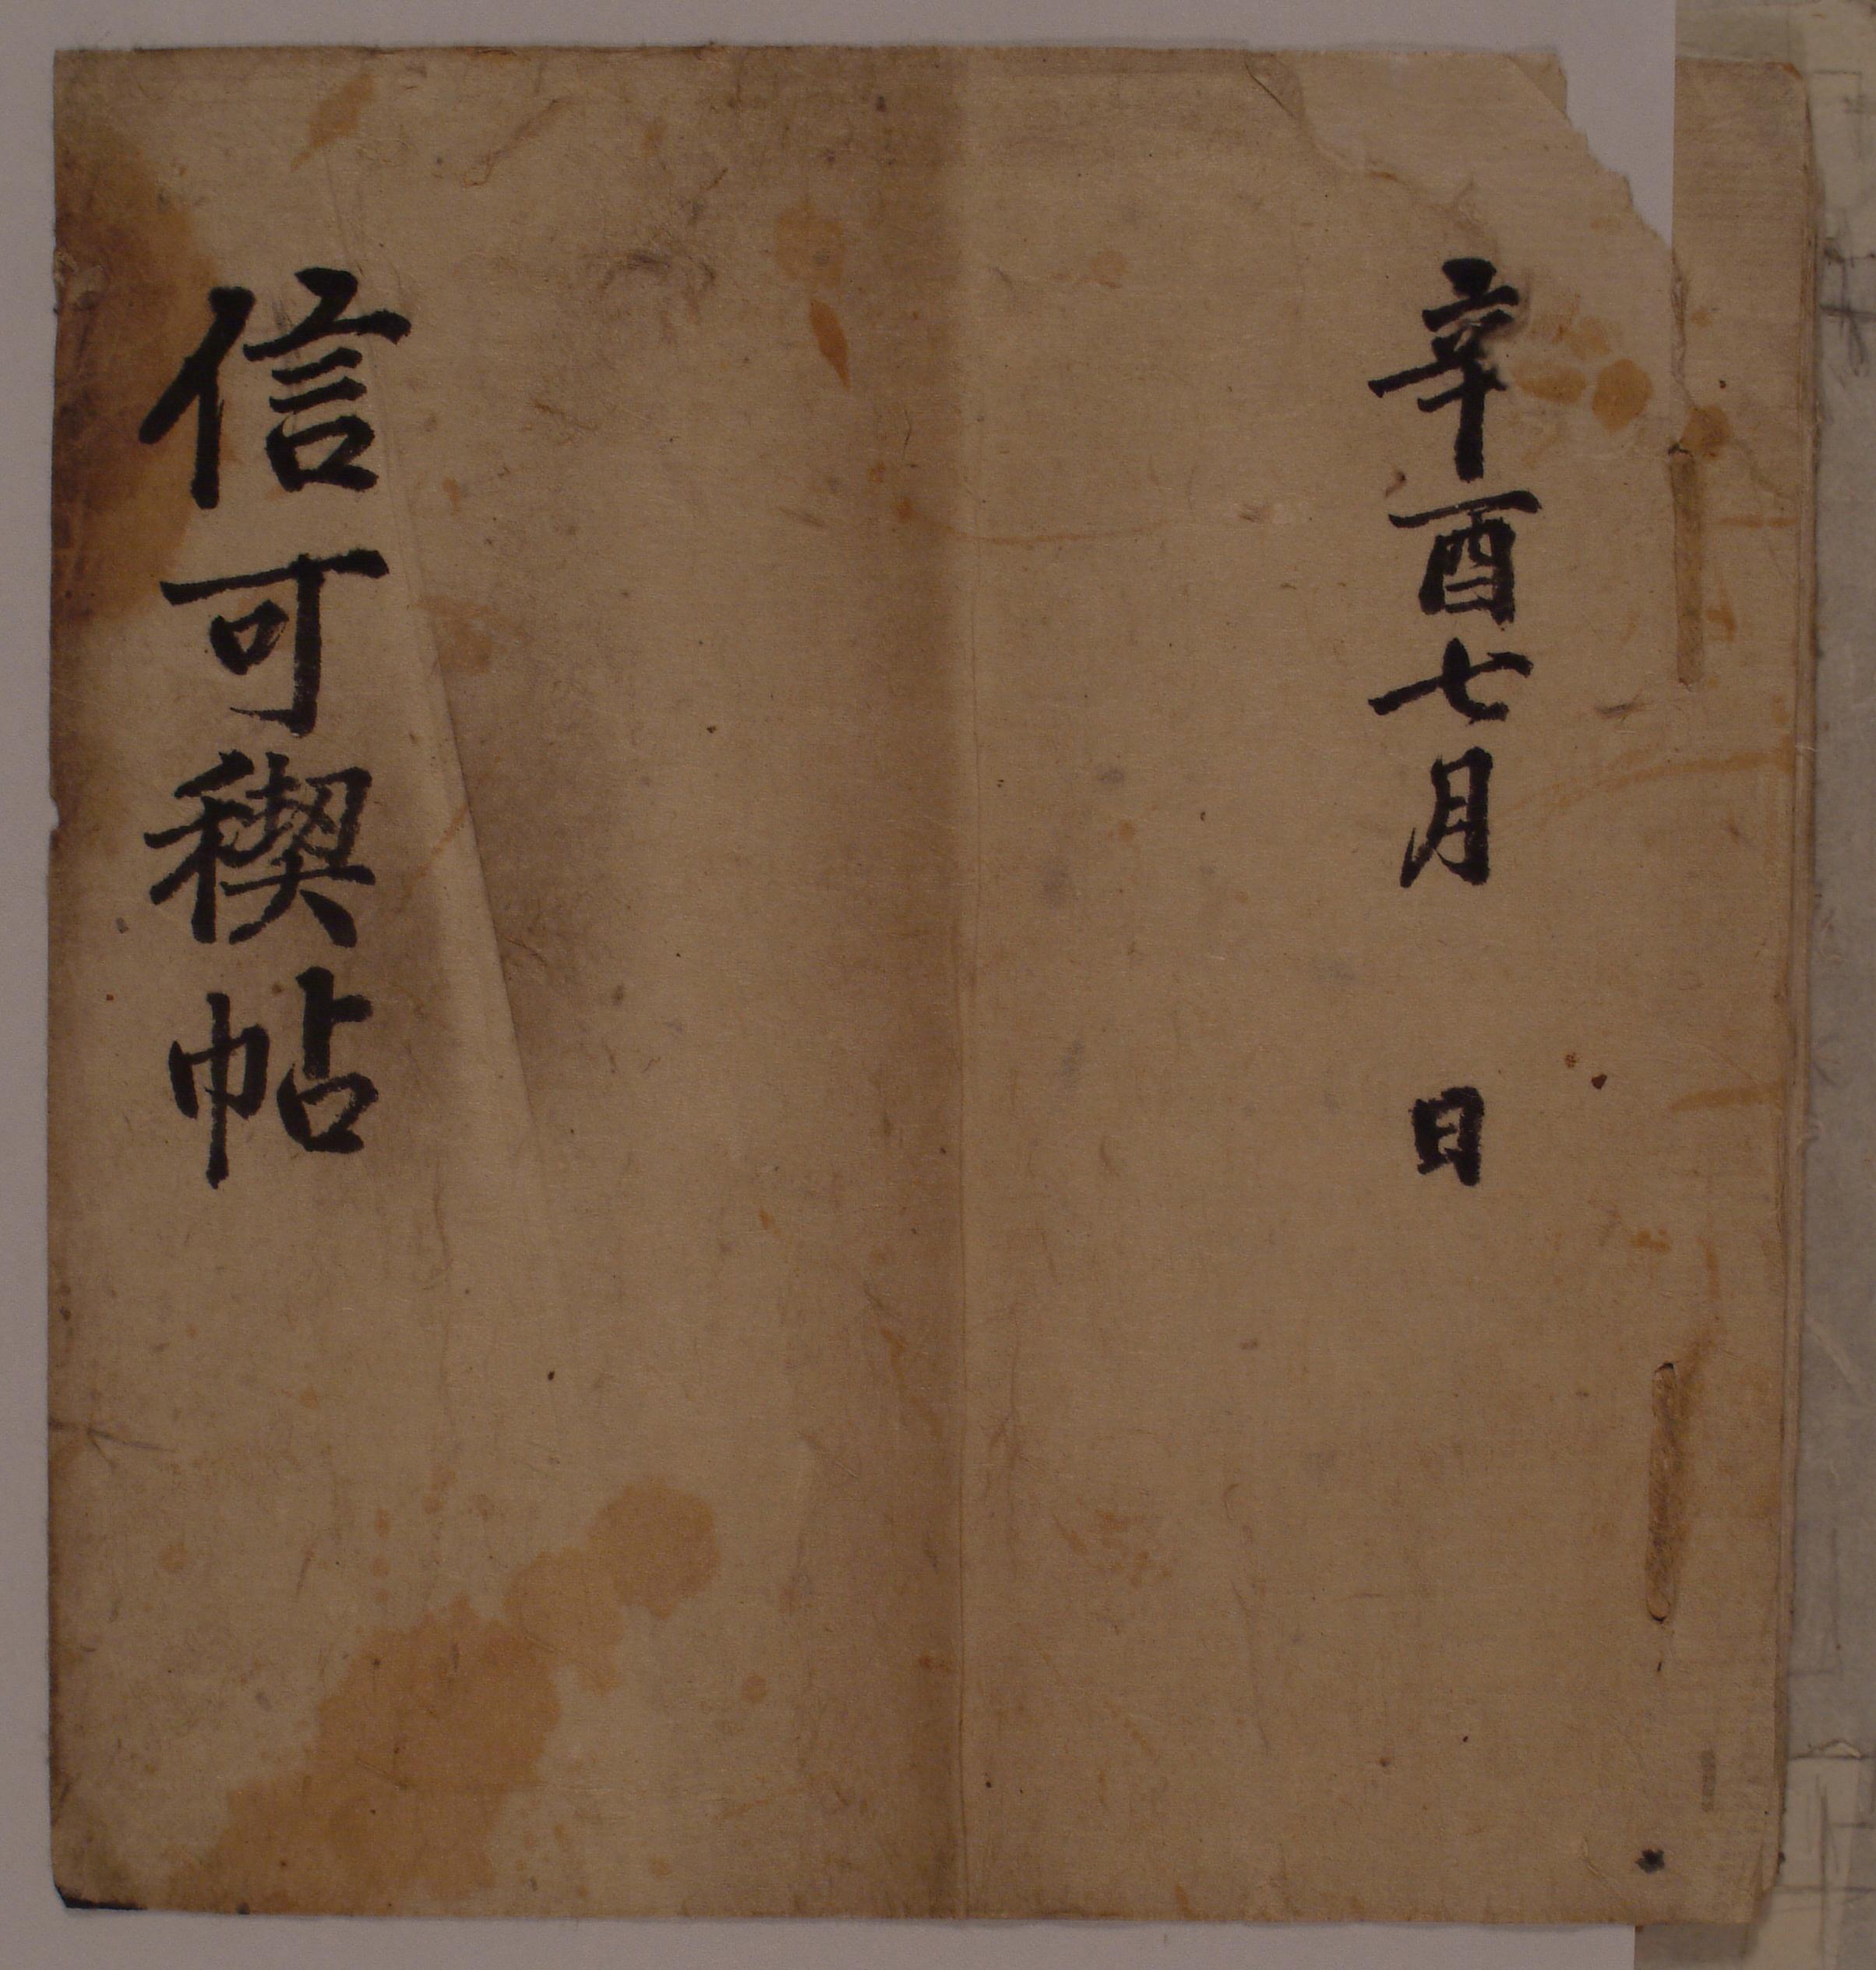 辛酉七月 日
信可稧帖